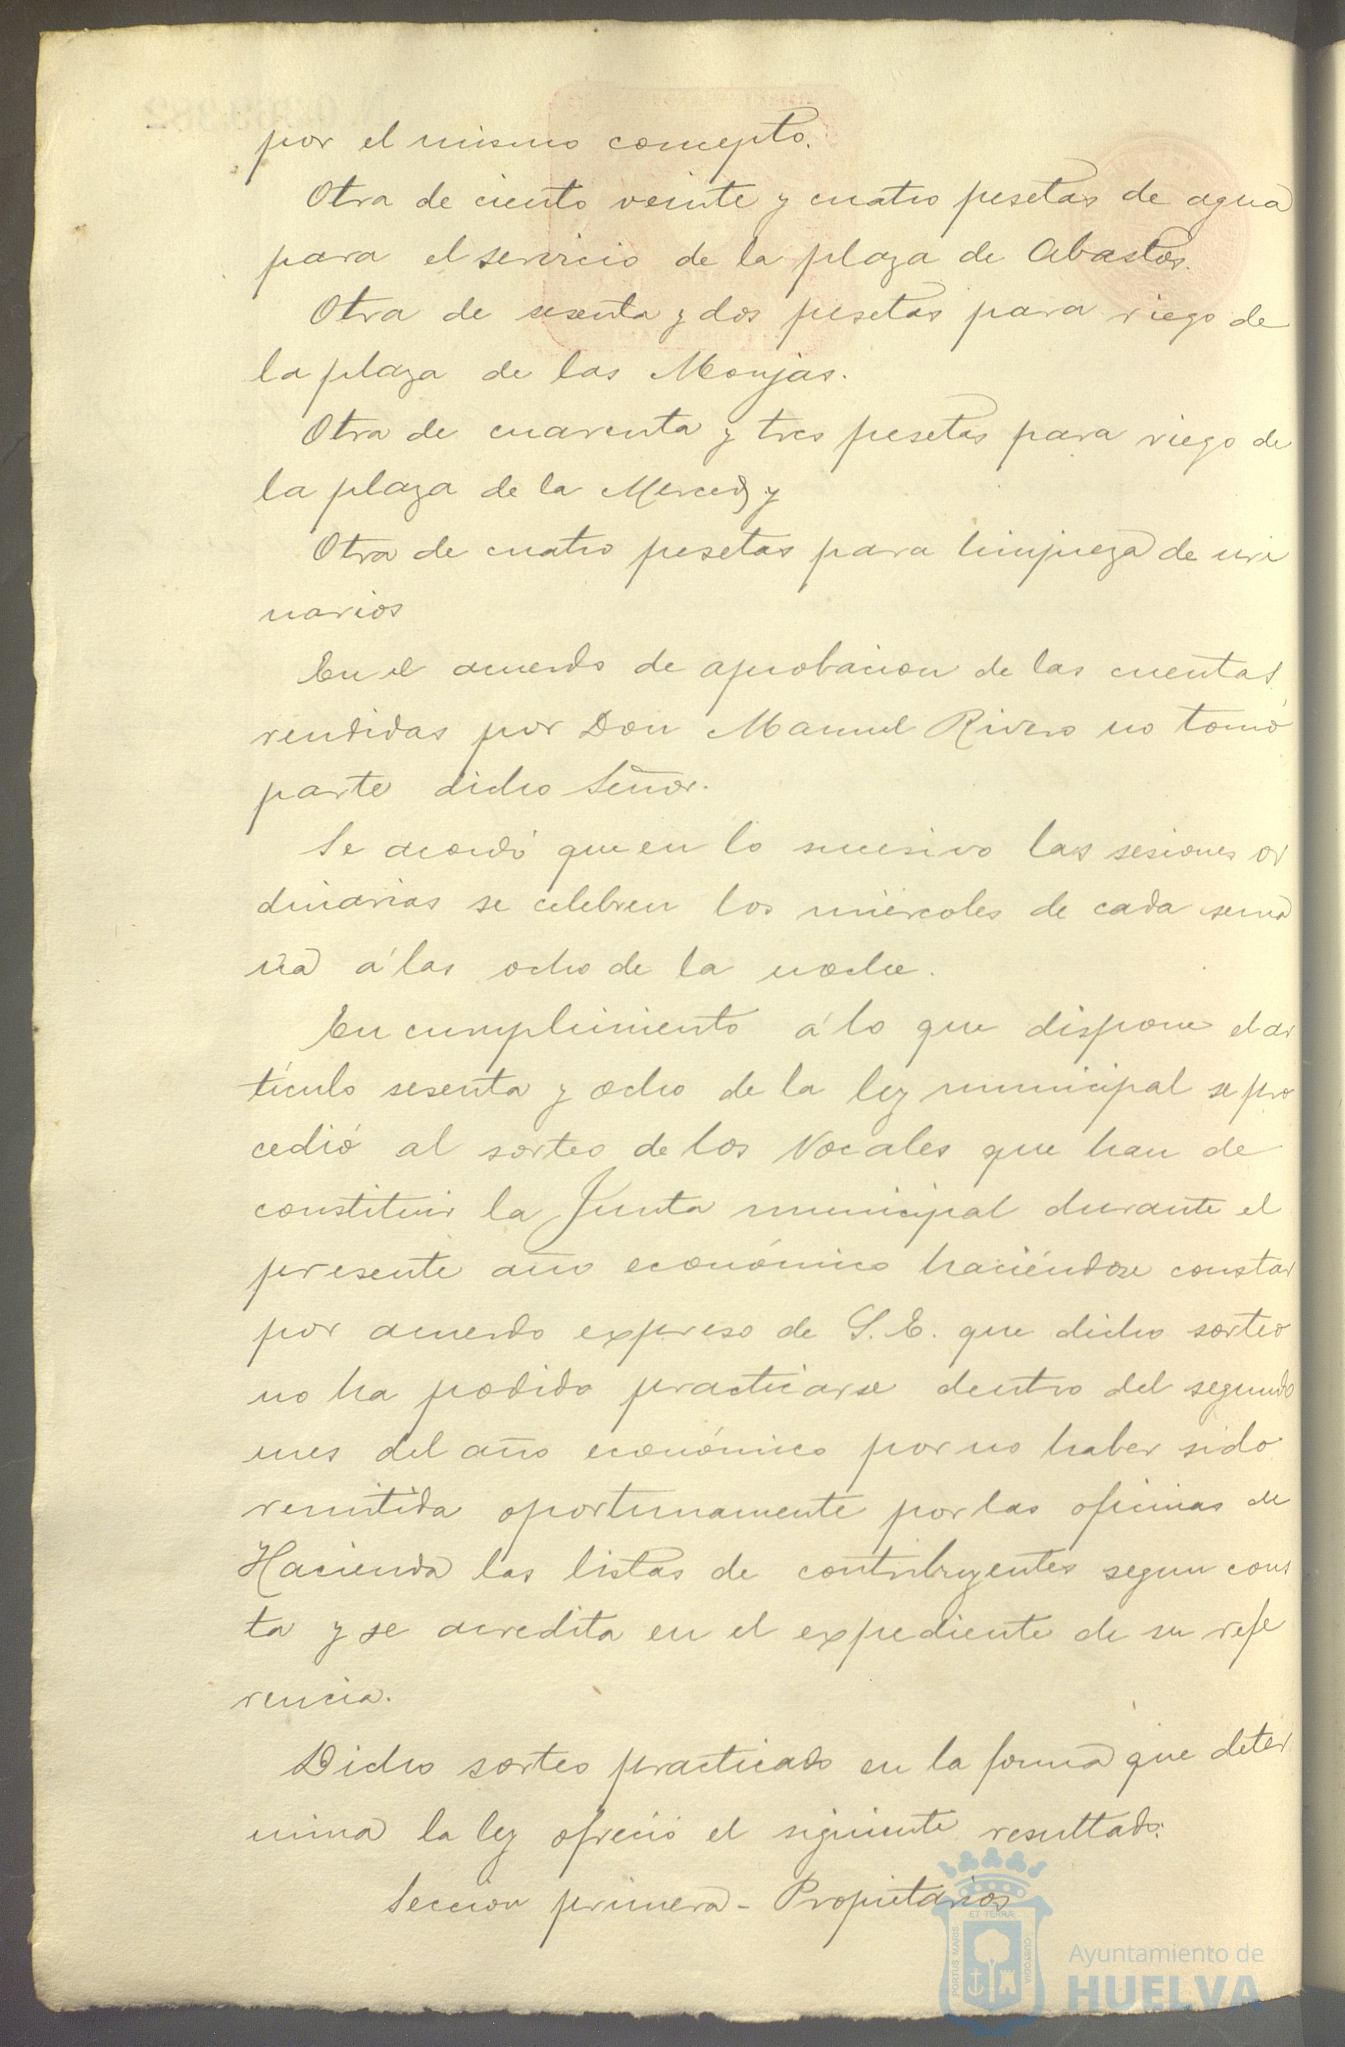 por el mismo concepto.
Otra de ciento veinte y cuatro pesetas de agua
para el servicio de la plaza de Abastos.
Otra de sesenta y dos pesetas para riego de
la plaza de las Monjas.
Otra de cuarenta y tres pesetas para riego de
la plaza de la Merced y
Otra de cuatro pesetas para limpieza de uri
narios
En el acuerdo de aprobacion de las cuentas
rendidas por Don Manuel Rivero no tomó
parte dicho Señor.
Se acordó que en lo sucesivo las sesiones or
dinarias se celebren los miércoles de cada sema
na á las ocho de la noche.
En cumplimiento á lo que dispone el ar
tículo sesenta y ocho de la ley municipal se pro
cedió al sorteo de los Vocales que han de
constituir la Junta municipal durante el
presente año económico haciéndose constar
por acuerdo expreso de S. E. que dicho sorteo
no ha podido practicarse dentro del segundo
mes del año económico por no haber sido
remitida oportunamente por las oficinas de
Hacienda las listas de contribuyentes segun cons
ta y se acredita en el expediente de su refe
rencia.
Dicho sorteo practicado en la forma que deter
mina la ley ofreció el siguiente resultado:
Seccion primera - Propietarios
PORTUS MARIS
ET TERRÆ
CUSTODIA
Ayuntamiento de
HUELVA